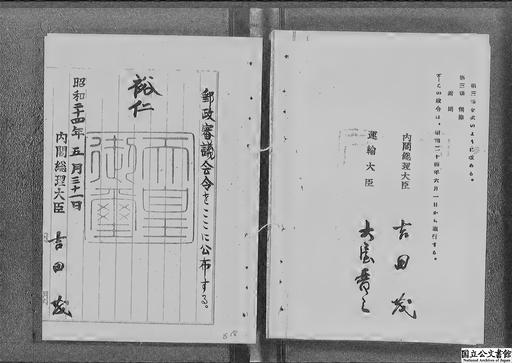 第三項を次のように改める。
第三項 削除
附則
1 この政令は、昭和二十四年六月一日から施行する。
内閣総理大臣 吉田茂
運輸大臣 大屋晋三
郵政審議会令をここに公布する。
裕仁
天皇御璽
昭和二十四年五月三十一日
内閣総理大臣 吉田茂
国立公文書館
National Archives of Japan